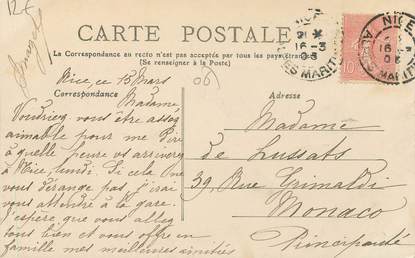 12€
CARTE POSTALE
La Correspondance au recto n'est pas acceptée par tous les pays étrangers
(Se renseigner à la Poste)
Nice, ce 13 Mars
06
Correspondance
Adresse
Madame,
Voudriez vous être assez
aimable pour me dire
à quelle heure vs arriverez
à Nice lundi. Si cela ne
vous dérange pas j'irai
vous attendre à la gare.
J'espère que vous allez
tous bien et vous offre en
famille mes meilleures amitiés
Madame
de Lussats
39, Rue Grimaldi
Monaco
Principauté
NICE
ALPES MARITIMES
10